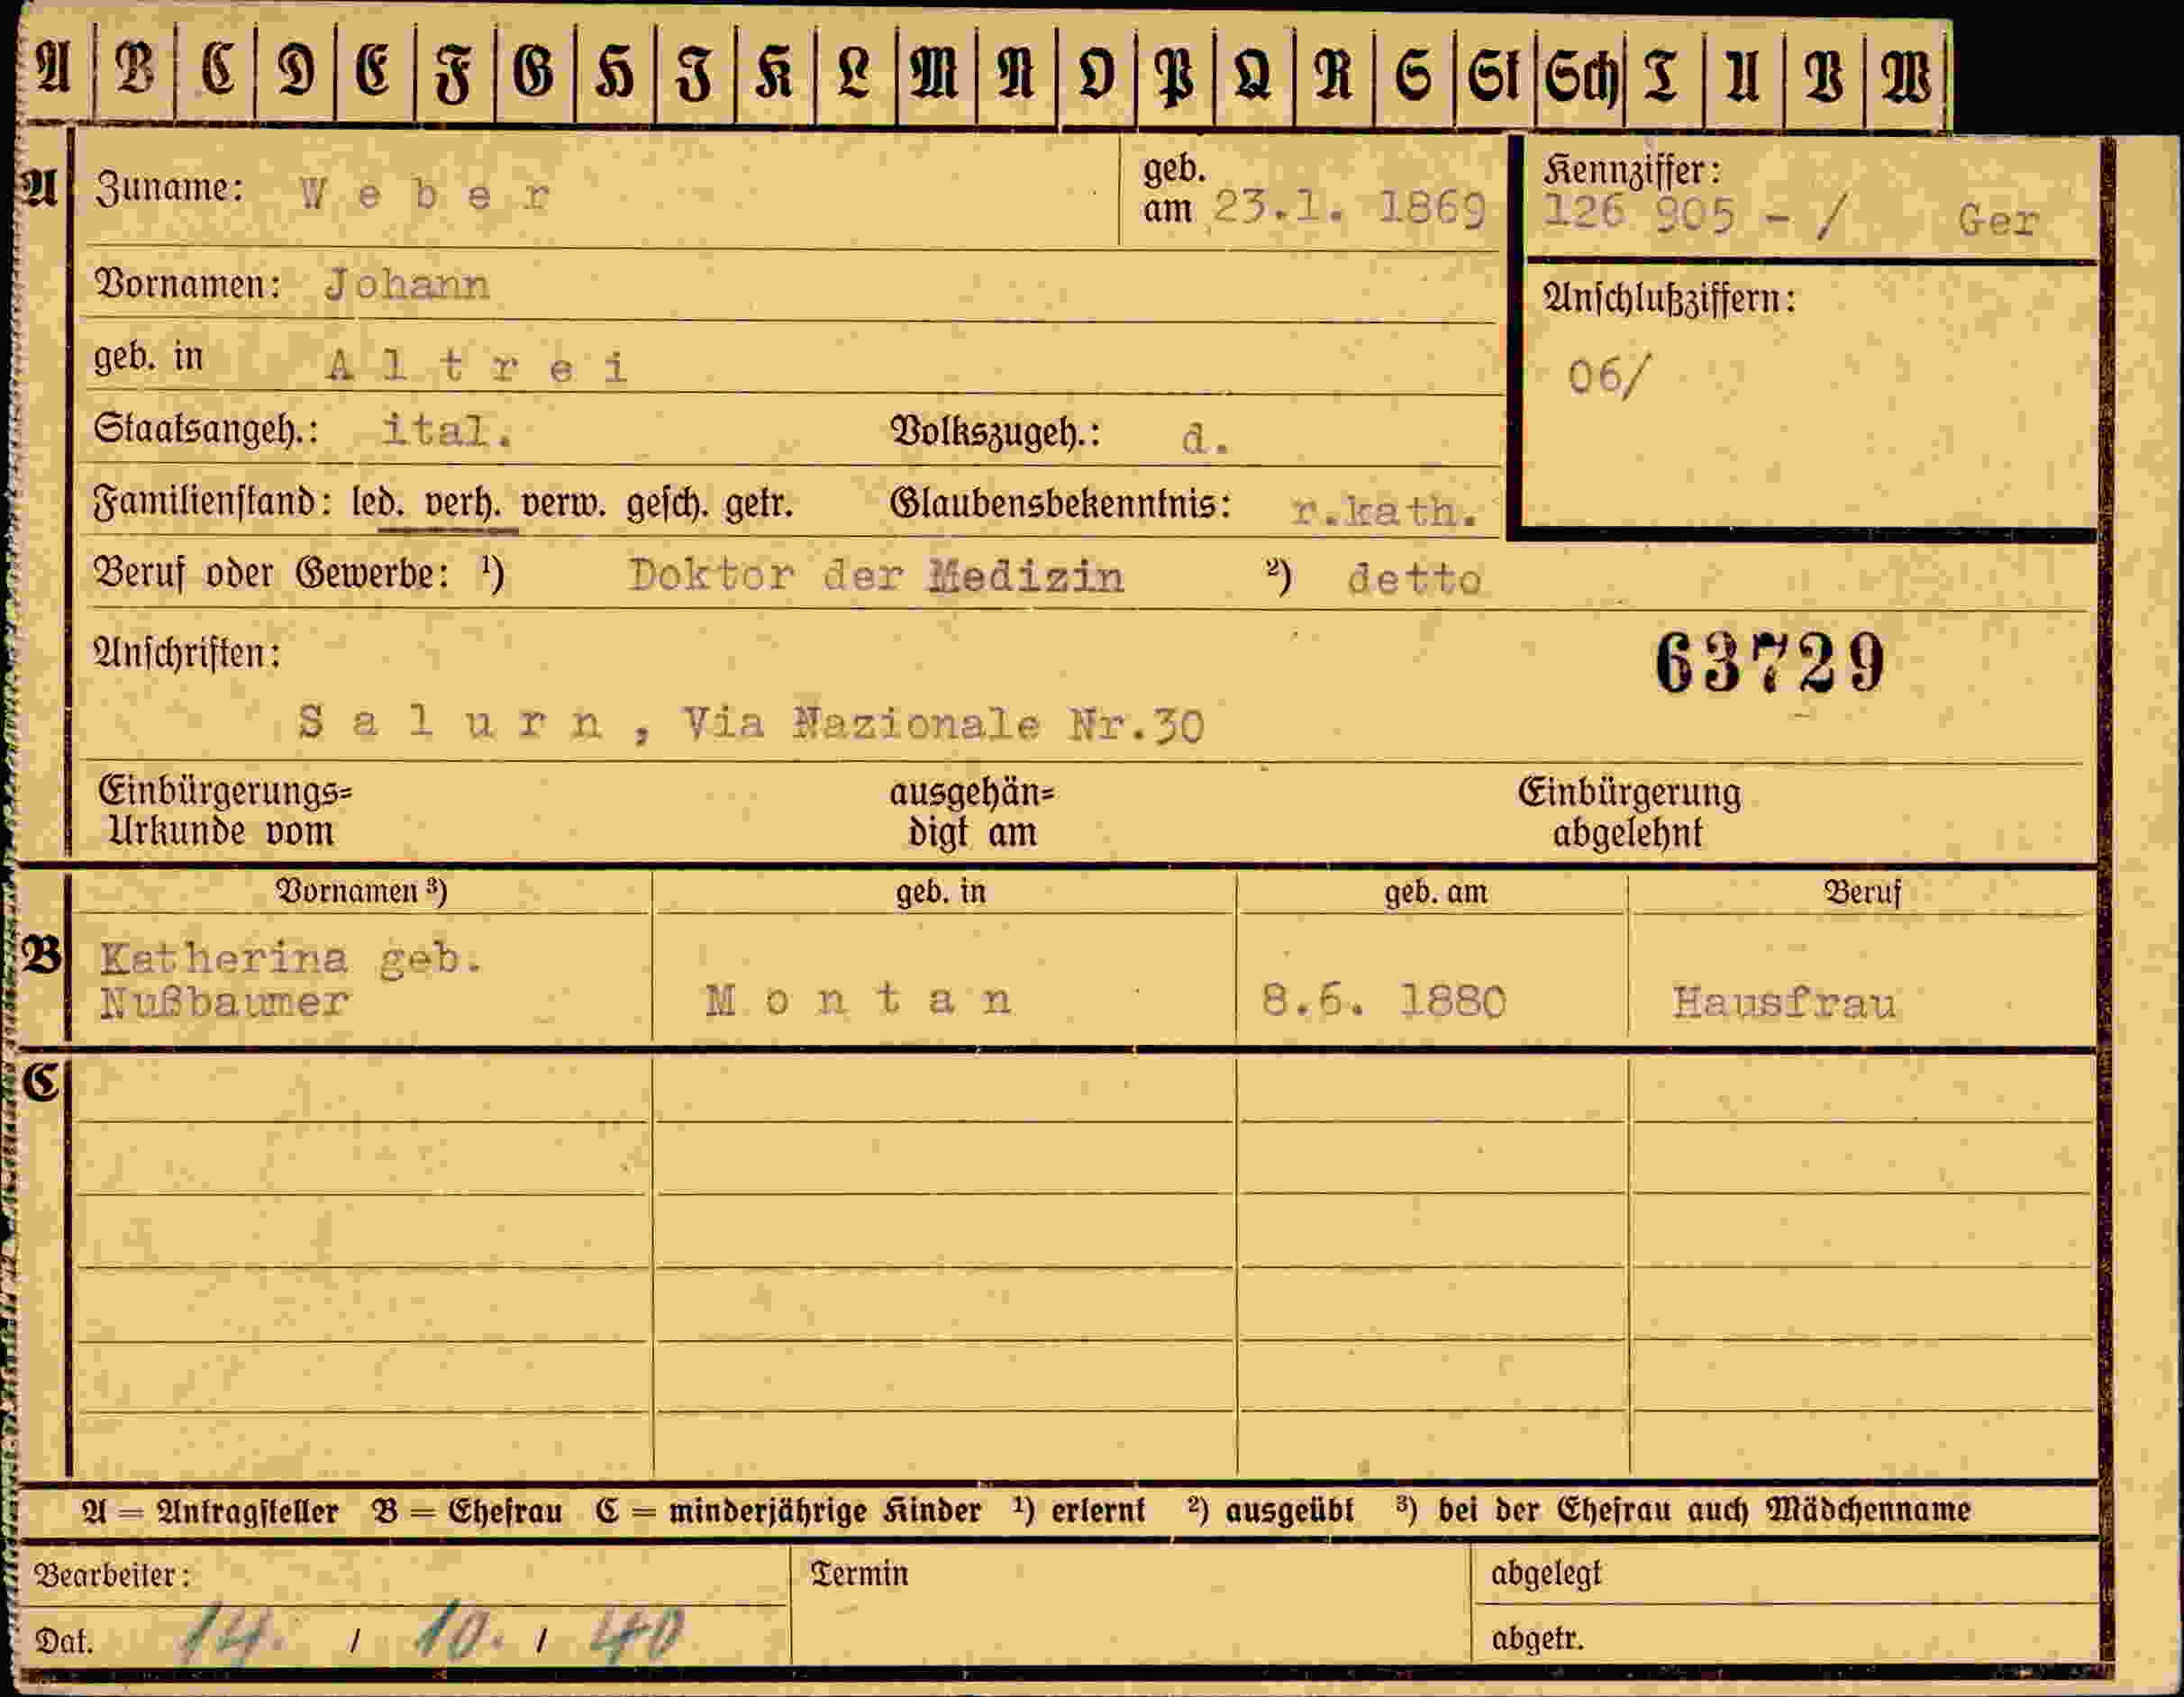 A B C D E F G H J K L M N O P Q R S St Sch T U V W
A
Zuname: Weber
geb. am 23.1. 1869
Kennziffer:
126 905 - / Ger
Vornamen: Johann
Anschlußziffern:
06/
geb. in Altrei
Staatsangeh.: ital. Volkszugeh.: d.
Familienstand: led. verh. verw. gesch. getr. Glaubensbekenntnis: r.kath.
Beruf oder Gewerbe: ¹) Doktor der Medizin ²) detto
Anschriften:
63729
Salurn, Via Nazionale Nr.30
Einbürgerungs= ausgehän= Einbürgerung
Urkunde vom digt am abgelehnt
Vornamen ³) geb. in geb. am Beruf
B
Katherina geb.
Nußbaumer Montan 8.6. 1880 Hausfrau
C
A = Antragsteller B = Ehefrau C = minderjährige Kinder ¹) erlernt ²) ausgeübt ³) bei der Ehefrau auch Mädchenname
Bearbeiter: Termin abgelegt
Dat. 14. / 10. / 40 abgetr.